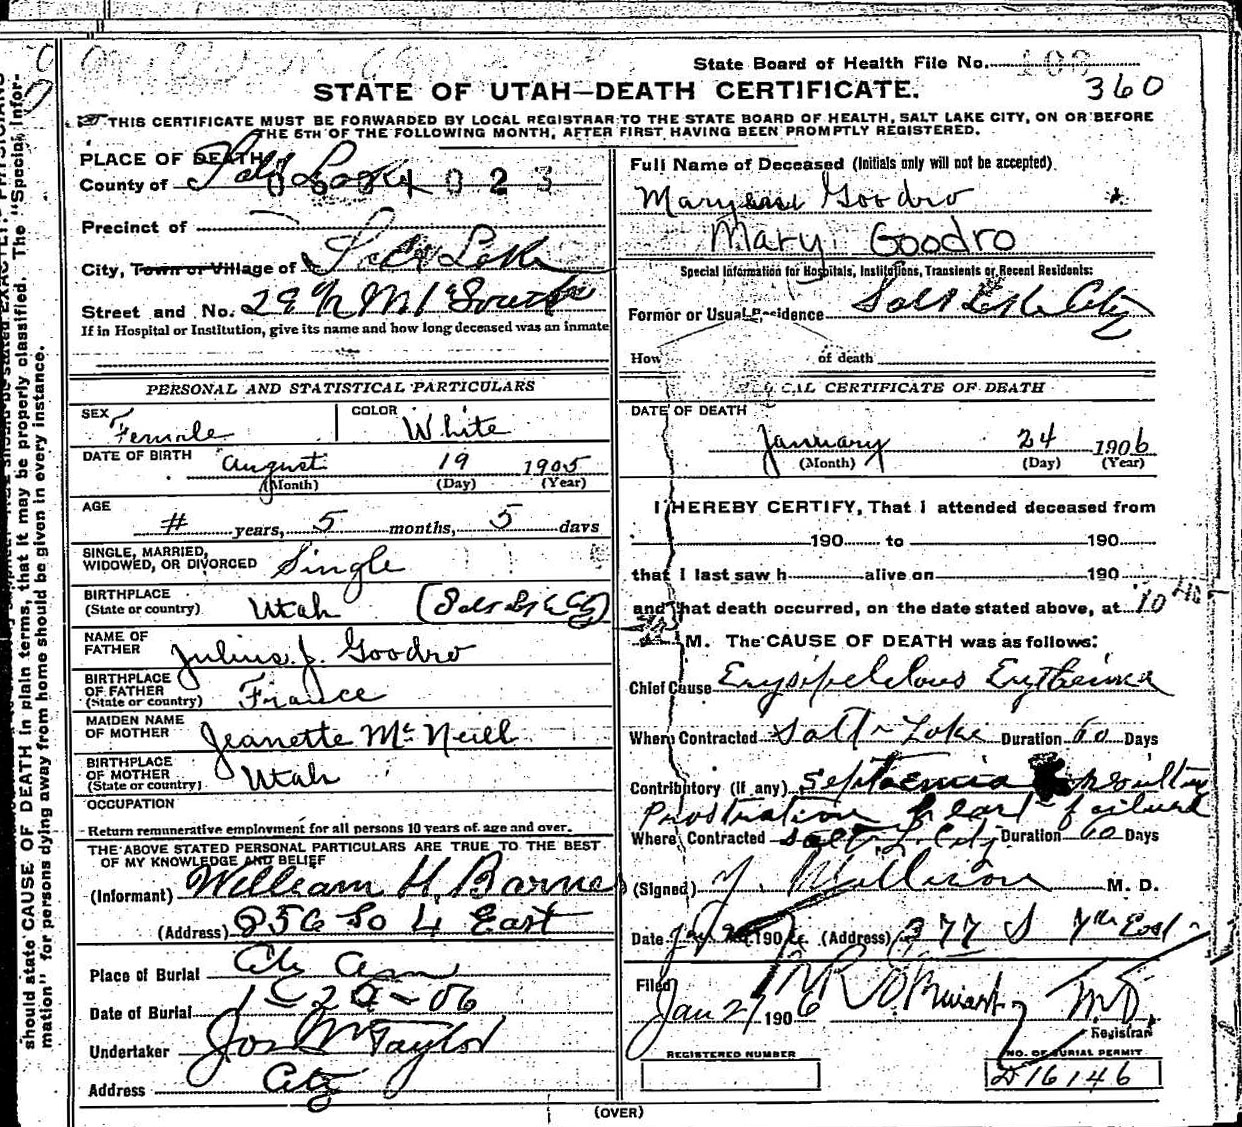 State Board of Health File No. 108
360
STATE OF UTAH—DEATH CERTIFICATE.
THIS CERTIFICATE MUST BE FORWARDED BY LOCAL REGISTRAR TO THE STATE BOARD OF HEALTH, SALT LAKE CITY, ON OR BEFORE
THE 5TH OF THE FOLLOWING MONTH, AFTER FIRST HAVING BEEN PROMPTLY REGISTERED.
PLACE OF DEATH
County of Salt Lake
Precinct of
City, Town or Village of Salt Lake
Street and No. 29
If in Hospital or Institution, give its name and how long deceased was an inmate
PERSONAL AND STATISTICAL PARTICULARS
SEX Female COLOR White
DATE OF BIRTH August 19 1905
(Month) (Day) (Year)
AGE
# years, 5 months, 5 days
SINGLE, MARRIED,
WIDOWED, OR DIVORCED Single
BIRTHPLACE
(State or country) Utah (Salt Lk Cty)
NAME OF
FATHER Julius J. Goodro
BIRTHPLACE
OF FATHER
(State or country) France
MAIDEN NAME
OF MOTHER Jeanette McNeill
BIRTHPLACE
OF MOTHER
(State or country) Utah
OCCUPATION
Return remunerative employment for all persons 10 years of age and over.
THE ABOVE STATED PERSONAL PARTICULARS ARE TRUE TO THE BEST
OF MY KNOWLEDGE AND BELIEF
(Informant) William H Barnes
(Address) 856 So 4 East
Place of Burial
Date of Burial 1-29-06
Undertaker Jos Wm Taylor
Address City
Full Name of Deceased (Initials only will not be accepted)
Mary Goodro
Mary Goodro
Special Information for Hospitals, Institutions, Transients or Recent Residents:
Former or Usual Residence Salt Lake City
How of death
CAL CERTIFICATE OF DEATH
DATE OF DEATH
January 24 1906
(Month) (Day) (Year)
I HEREBY CERTIFY, That I attended deceased from
190 to 190
that I last saw h alive on 190
and that death occurred, on the date stated above, at 10
M. The CAUSE OF DEATH was as follows:
Chief Cause Erysipelelous Erythema
Where Contracted Salt Lake Duration 60 Days
Contributory (if any) Septaemia resulting
Prostration heart failure
Where Contracted Salt L. City Duration 60 Days
(Signed) Y. Mallison M. D.
Date Jan 190 (Address) 377 S 7th East
Filed
Jan 27 1906 M.D.
Registrar
REGISTERED NUMBER
NO. OF BURIAL PERMIT
D16146
(OVER)
should state CAUSE OF DEATH in plain terms, that it may be properly classified. The "Special Infor-
mation" for persons dying away from home should be given in every instance.